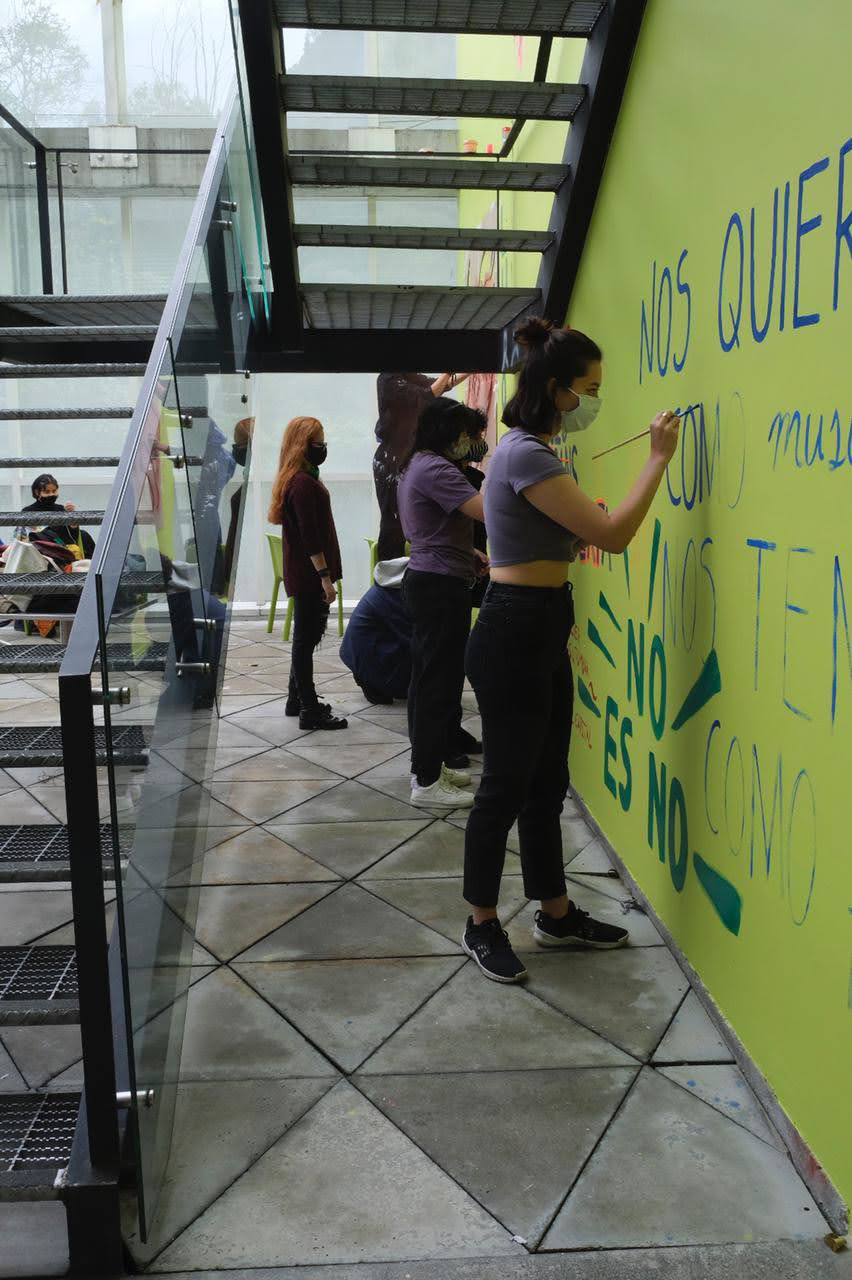 NOS QUIER
COMO musa
NOS TEN
COMO
NO
ES NO